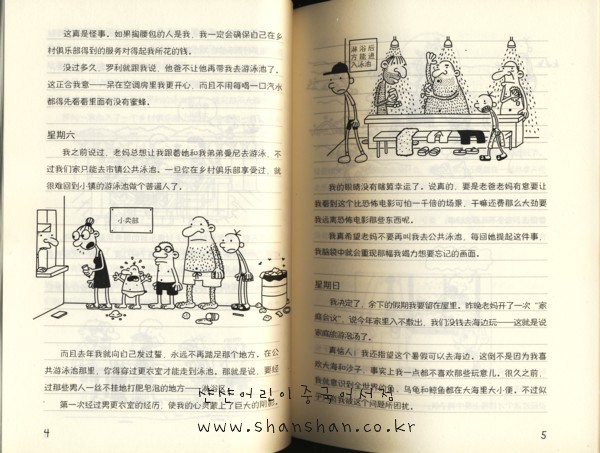 这真是怪事。如果掏腰包的人是我，我一定会确保自己在乡
村俱乐部得到的服务对得起我所花的钱。
没过多久，罗利就跟我说，他爸不让他再带我去游泳了。
这正合我意——呆在空调房里我更开心，而且不用每喝一口汽水
都得先看看里面有没有蜜蜂。
星期六
我之前说过，老妈总想让我跟着她和我弟弟曼尼去游泳，不
过我们家只能去市镇公共泳池。一旦你在乡村俱乐部享受过，就
很难回到小镇的游泳池做个普通人了。
小卖部
而且去年我就向自己发过誓，永远不再踏足那个地方。在公
共游泳池那里，你得穿过更衣室才能走到泳池。那就是说，要经
过那些男人一丝不挂地打肥皂泡的地方——淋浴区。
第一次经过男更衣室的经历，使我的心灵蒙上了巨大的阴影。
4
淋浴后
方能进
入泳池
我的眼睛没有瞎算幸运了。说真的，要是老爸老妈有意要让
我看到这个比恐怖电影可怕一千倍的场景，干嘛还费那么大劲要
我远离恐怖电影那些东西呢。
我真希望老妈不要再叫我去公共泳池，每回她提起这件事，
我脑袋中就会重现那幅我竭力想要忘记的画面。
星期日
我决定了，余下的假期我要留在屋里。昨晚老妈开了一次“家
庭会议”，说今年家里入不敷出，我们没钱去海边玩——这就是说
家庭旅游泡汤了。
真恼人！我还指望这个暑假可以去海边。这倒不是因为我喜
欢大海和沙子，事实上我一点都不喜欢那些玩意儿。很久之前，
我就意识到全世界的鱼、乌龟和鲸鱼都在大海里大小便。不过似
被这个问题所困扰。
5
샨샨어린이중국어서점
www.shanshan.co.kr